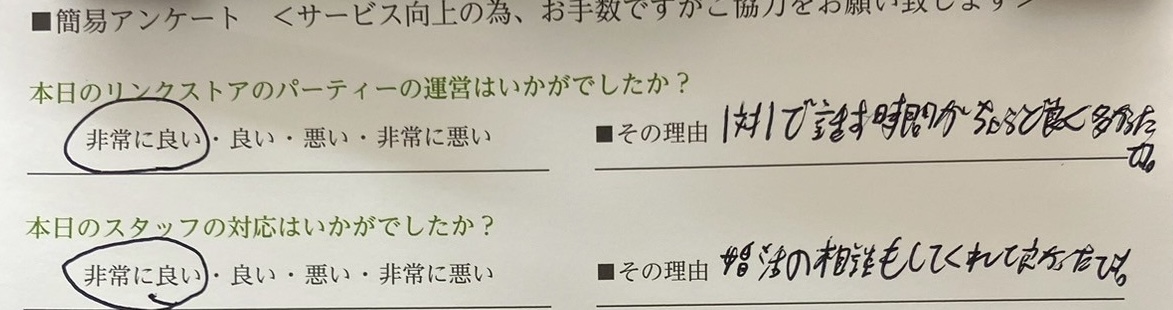 ■簡易アンケート ＜サービス向上の為、お手数ですがご協力をお願い致します＞
本日のリンクストアのパーティーの運営はいかがでしたか？
非常に良い・良い・悪い・非常に悪い ■その理由 1対1で話す時間が
です。
本日のスタッフの対応はいかがでしたか？
非常に良い・良い・悪い・非常に悪い ■その理由 婚活の相談もしてくれて良かったです。